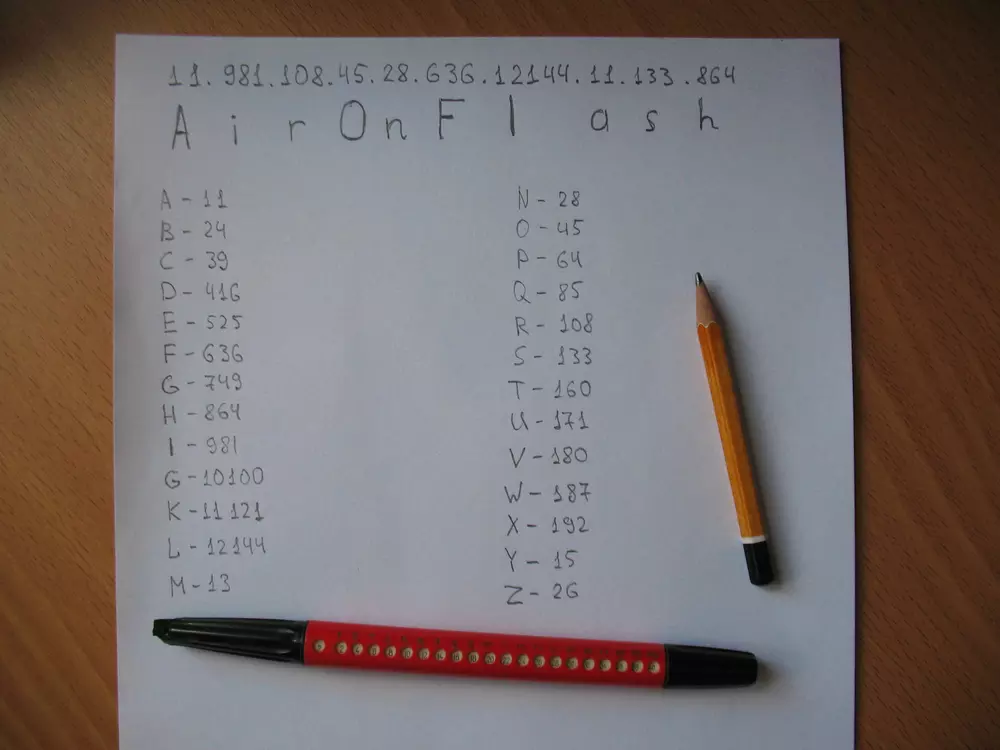 11.981.108.45.28.636.12144.11.133.864
AirOnFlash
A - 11
B - 24
C - 39
D - 416
E - 525
F - 636
G - 749
H - 864
I - 981
G - 10100
K - 11121
L - 12144
M - 13
N - 28
O - 45
P - 64
Q - 85
R - 108
S - 133
T - 160
U - 171
V - 180
W - 187
X - 192
Y - 15
Z - 26